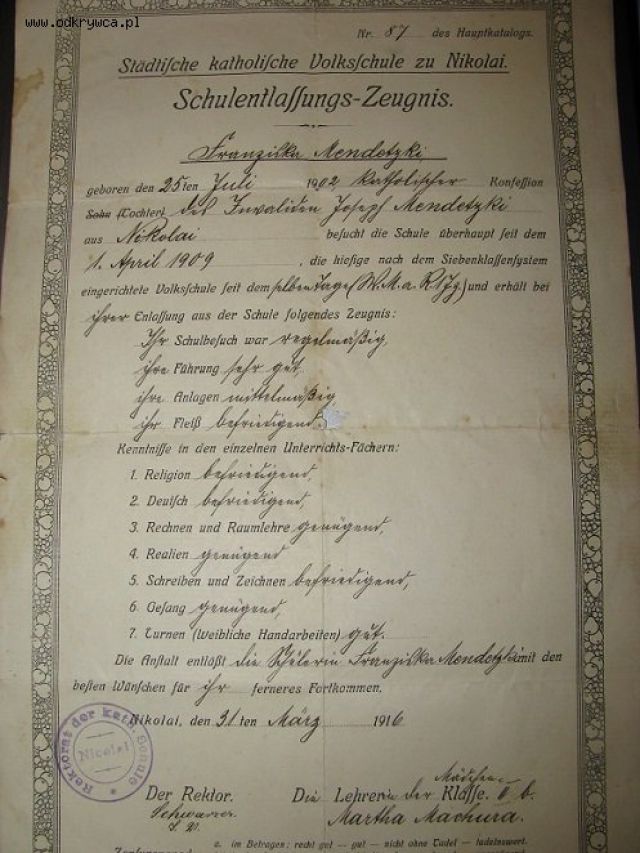 www.odkrywca.pl
Nr. 87 des Hauptkatalogs.
Städtische katholische Volksschule zu Nikolai.
Schulentlassungs-Zeugnis.
Franziska Mendetzki
geboren den 25ten Juli 1902 katholischer Konfession
Sohn (Tochter) des Invaliden Joseph Mendetzki
aus Nikolai besucht die Schule überhaupt seit dem
1. April 1909, die hiesige nach dem Siebenklassensystem
eingerichtete Volksschule seit demselben Tage (W. M. a. R.) und erhält bei
ihrer Entlassung aus der Schule folgendes Zeugnis:
Ihr Schulbesuch war regelmäßig,
ihre Führung sehr gut,
ihre Anlagen mittelmäßig,
ihr Fleiß befriedigend.
Kenntnisse in den einzelnen Unterrichts-Fächern:
1. Religion befriedigend,
2. Deutsch befriedigend,
3. Rechnen und Raumlehre genügend,
4. Realien genügend
5. Schreiben und Zeichnen befriedigend,
6. Gesang genügend,
7. Turnen (Weibliche Handarbeiten) gut.
Die Anstalt entläßt die Schülerin Franziska Mendetzki mit den
besten Wünschen für ihr ferneres Fortkommen.
Nikolai, den 31ten März 1916
Rektorat der kath. Schule
Nicolai
Mädchen
Der Rektor. Die Lehrerin der Klasse. II b.
Martha Machura.
a. im Betragen: recht gut — gut — nicht ohne Tadel — tadelnswert.